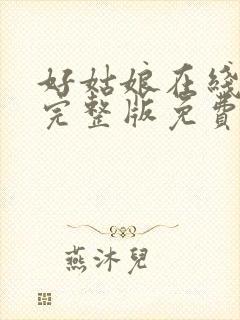 好姑娘在綫
完整版免費
燕沐兒